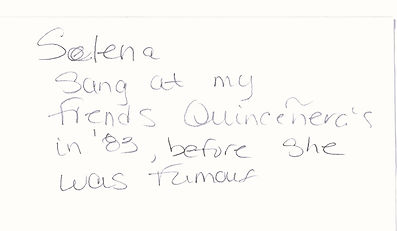 Selena
Sang at my
friends Quinceñera's
in '83, before she
was famous